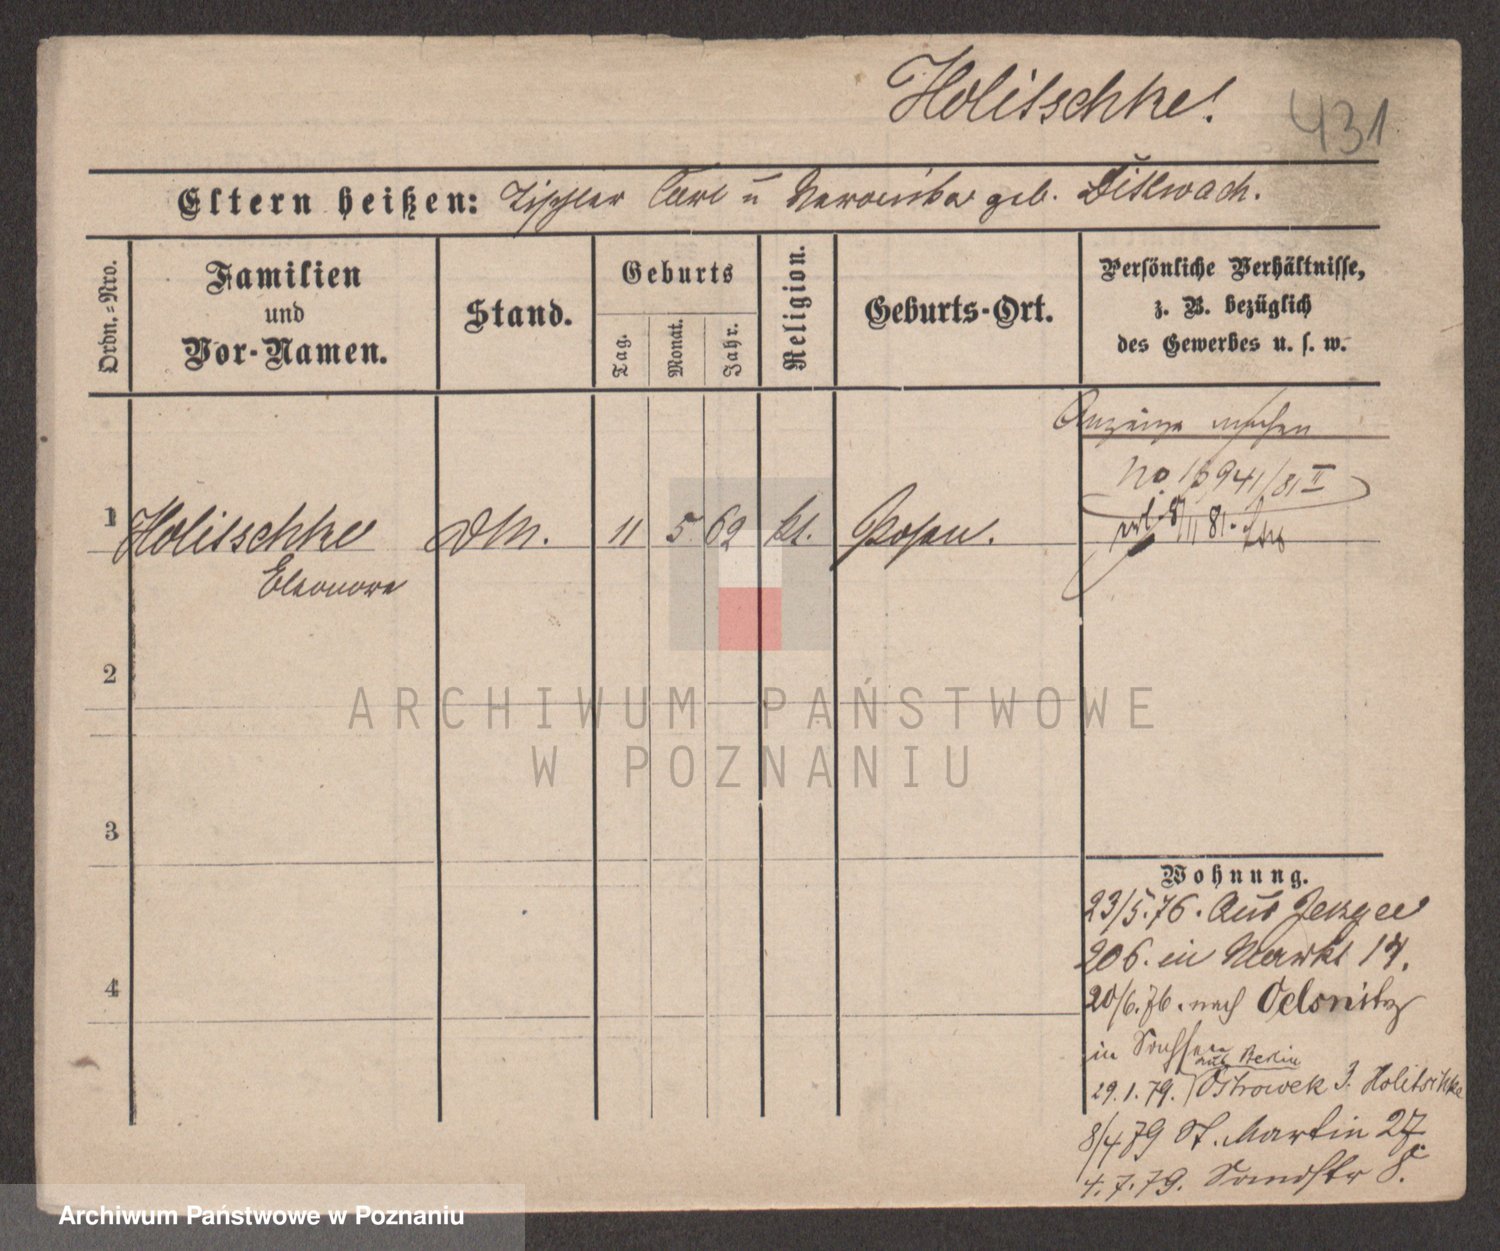 Holitschke!
431
Eltern heißen: Tischler Carl u Veronika geb. Dittwach.
Ordn.-Nro.
Familien
und
Vor-Namen.
Stand.
Geburts
Tag.
Monat.
Jahr.
Religion.
Geburts-Ort.
Persönliche Verhältnisse,
z. B. bezüglich
des Gewerbes u. s. w.
Anzeige machen
No 13941/81 II
8/11 81.
1 Holitschke DM. 11 5 62 kt. Posen.
Eleonore
2
3
4
ARCHIWUM PAŃSTWOWE
W POZNANIU
Wohnung.
23/5.76. Aus
206. in Markt 17.
20/6.76. nach Oelsnitz
in Sachsen
aus Berlin
29.1.79. Ostrowek 3. Holitschke
8/4 79 St. Martin 27
4.7.79. Sandstr 8.
Archiwum Państwowe w Poznaniu